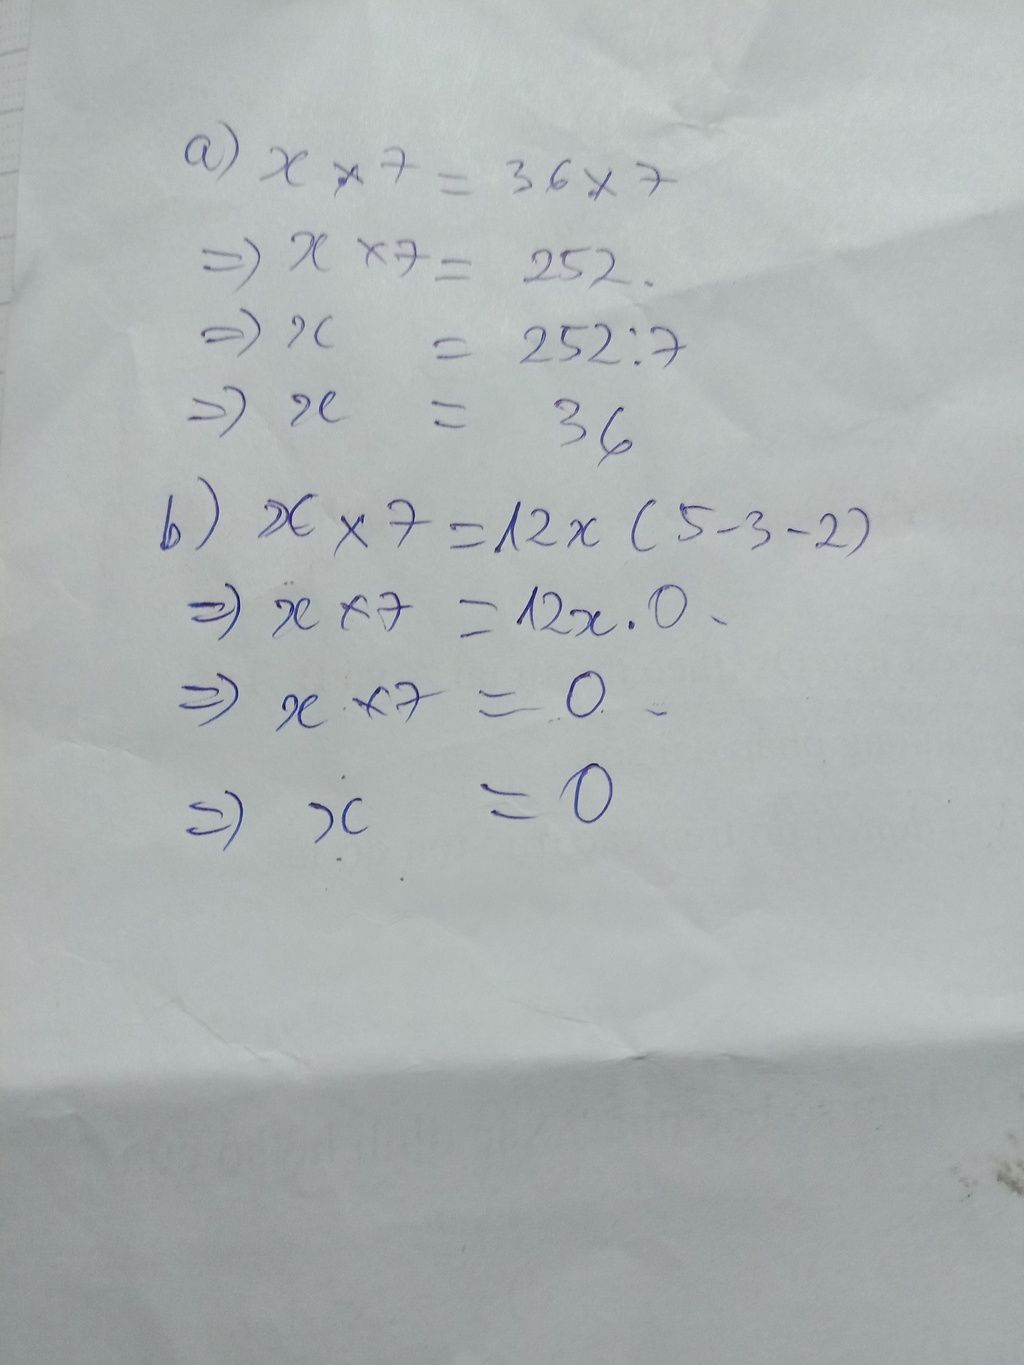 a) x × 7 = 36 × 7
=) x × 7 = 252.
=) x = 252:7
=) x = 36
b) x × 7 = 12x (5-3-2)
=) x × 7 = 12x.0.
=) x × 7 = 0.
=) x = 0